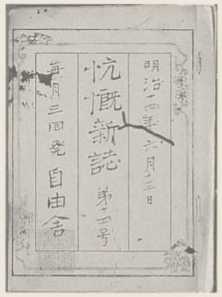 明治十四年六月十二日
忼慨新誌 第十四号
毎月三回発 自由舎